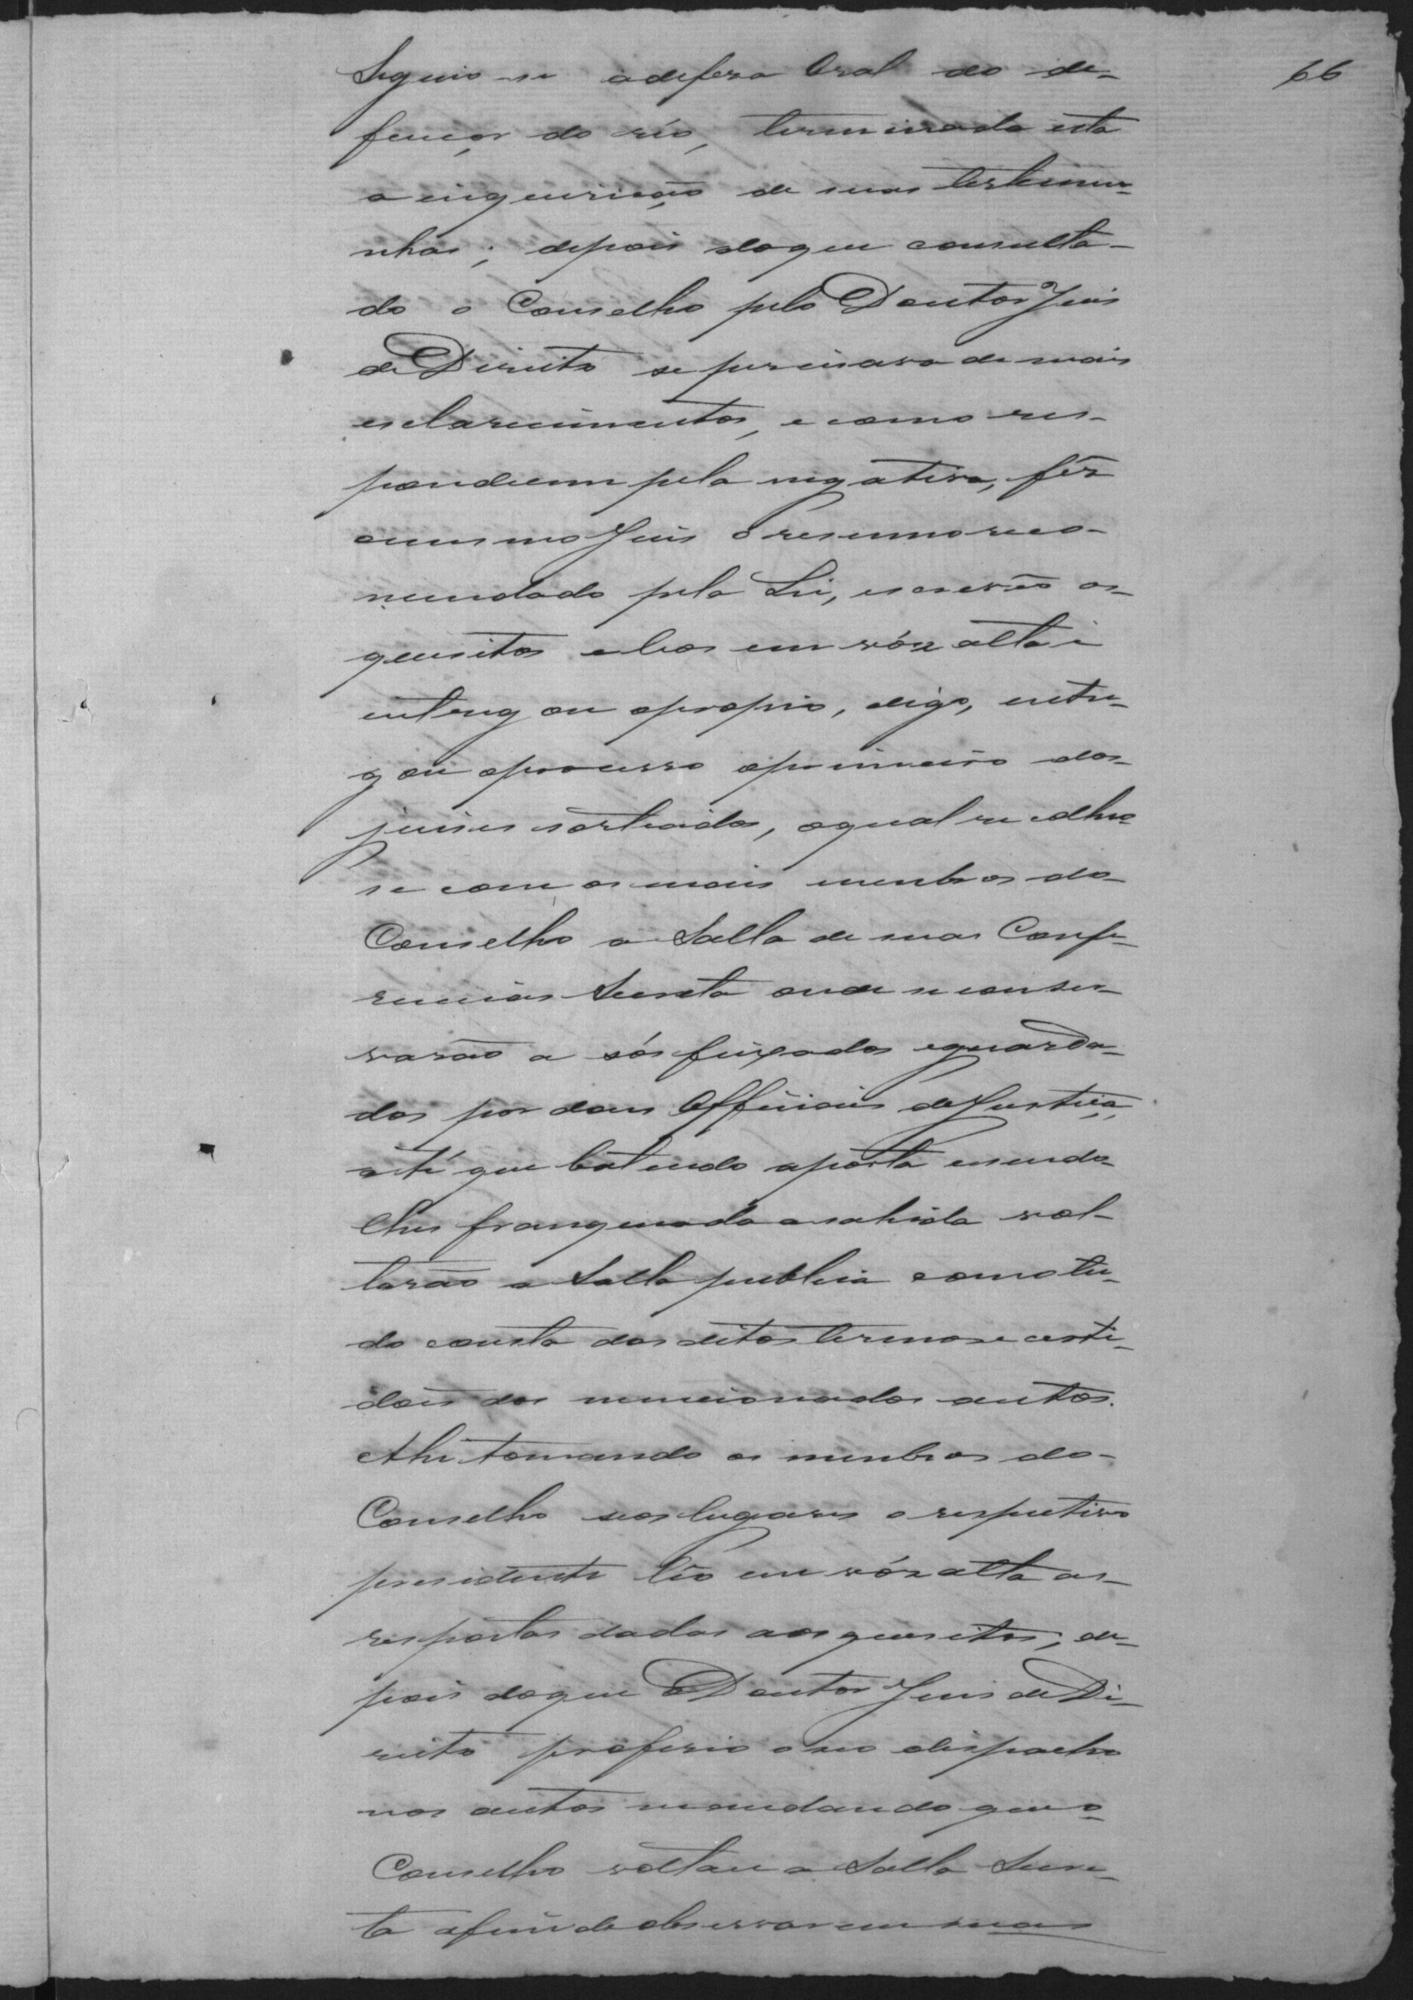 66
Seguio-se a defesa Oral do de-
fençor do réo, terminada esta
a enqueriçaõ de suas testemu-
nhas; depois doque consulta-
do o Conselho pelo Doutor Juis
de Direito se percisava de mais
esclarecimentos, e como res-
pondeceem pela negativa, fês
o mesmo Juis o resumo reco-
mendado pela Lei, escrevêo os
quesitos e leos em vóz alta e
entregou o propio, digo, entre-
gou o processo o primeiro dos
juises sorteados, o qual recolheo
se com os mais menbros do
Conselho a Salla de suas Confe-
rencias Secreta onde se conser-
varaõ a sós feixados e guarda-
dos por dous Officiais de Justiça,
até que batendo a porta e senda-
lhes franqueada a sahida vol-
taraõ a Salla publica como tu-
do consta dos ditos termos e certi-
dois dos mencionados autos.
Ahi tomando os menbros do
Conselho seos lugares o respectivo
presidente lêo em vóz alta as
respostas dadas aos quesitos; de-
pois doque o Doutor Juis de Di-
reito proferio o seo dispacho
nos autos mandando que o
Conselho voltace a Salla Secre-
ta afim de observarem suas